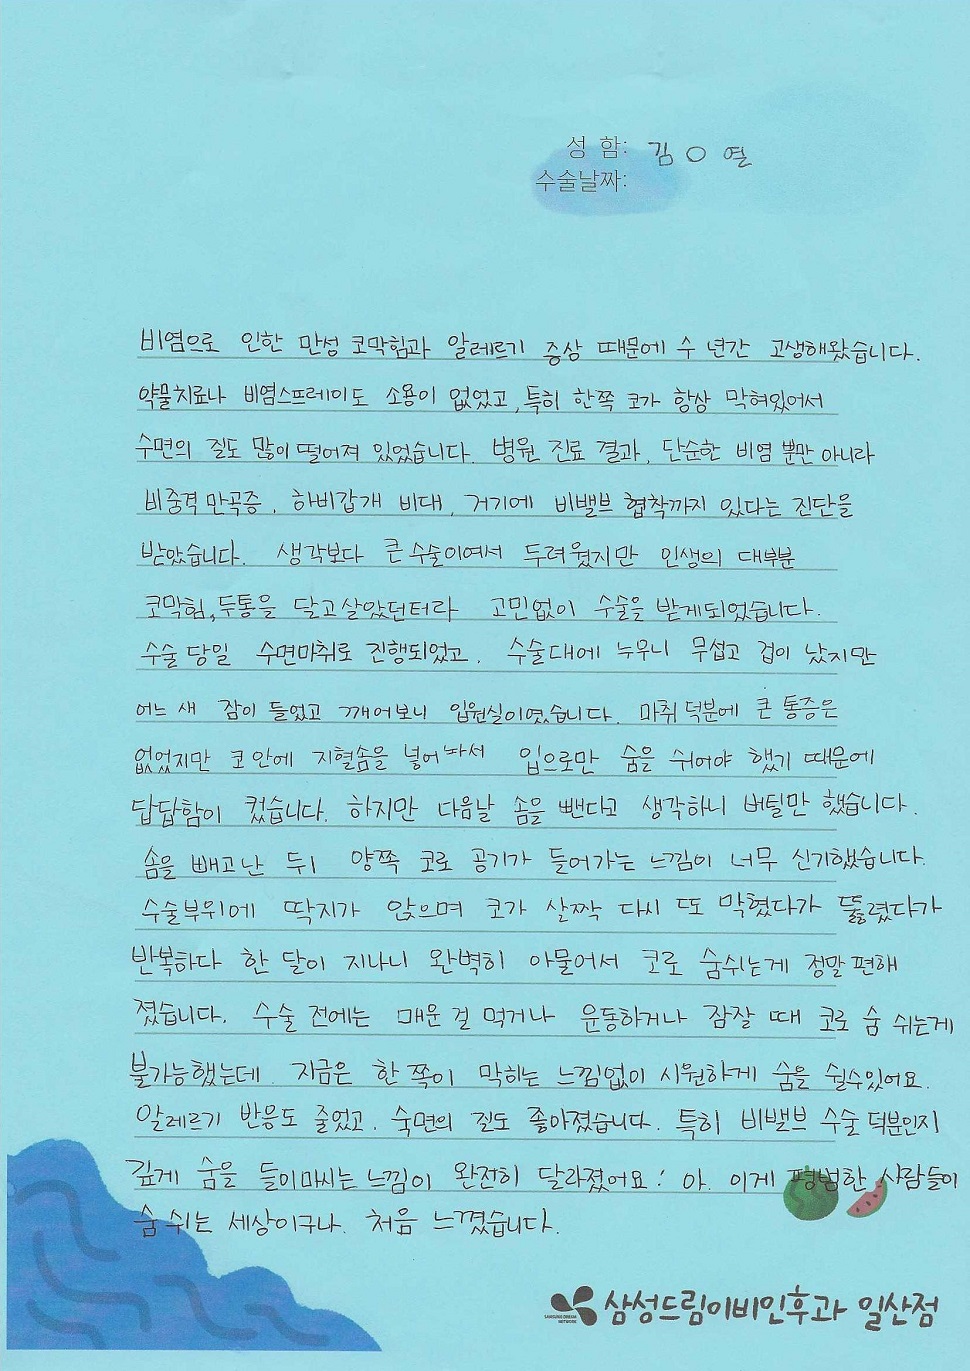 성 함: 김 O 열
수술날짜:
비염으로 인한 만성 코막힘과 알레르기 증상 때문에 수 년간 고생해왔습니다.
약물치료나 비염스프레이도 소용이 없었고, 특히 한쪽 코가 항상 막혀있어서
수면의 질도 많이 떨어져 있었습니다. 병원 진료 결과, 단순한 비염 뿐만 아니라
비중격 만곡증, 하비갑개 비대, 거기에 비밸브 협착까지 있다는 진단을
받았습니다. 생각보다 큰 수술이여서 두려웠지만 인생의 대부분
코막힘, 두통을 달고 살았던터라 고민없이 수술을 받게되었습니다.
수술 당일 수면마취로 진행되었고, 수술대에 누우니 무섭고 겁이 났지만
어느 새 잠이 들었고 깨어보니 입원실이였습니다. 마취 덕분에 큰 통증은
없었지만 코 안에 지혈솜을 넣어놔서 입으로만 숨을 쉬어야 했기 때문에
답답함이 컸습니다. 하지만 다음날 솜을 뺀다고 생각하니 버틸만 했습니다.
솜을 빼고 난 뒤 양쪽 코로 공기가 들어가는 느낌이 너무 신기했습니다.
수술부위에 딱지가 앉으며 코가 살짝 다시 또 막혔다가 뚫렸다가
반복하다 한 달이 지나니 완벽히 아물어서 코로 숨쉬는게 정말 편해
졌습니다. 수술 전에는 매운 걸 먹거나 운동하거나 잠잘 때 코로 숨 쉬는게
불가능했는데 지금은 한 쪽이 막히는 느낌없이 시원하게 숨을 쉴수있어요.
알레르기 반응도 줄었고, 숙면의 질도 좋아졌습니다. 특히 비밸브 수술 덕분인지
깊게 숨을 들이마시는 느낌이 완전히 달라졌어요! 아. 이게 평범한 사람들이
숨 쉬는 세상이구나. 처음 느꼈습니다.
SAMSUNG DREAM NETWORK 삼성드림이비인후과 일산점